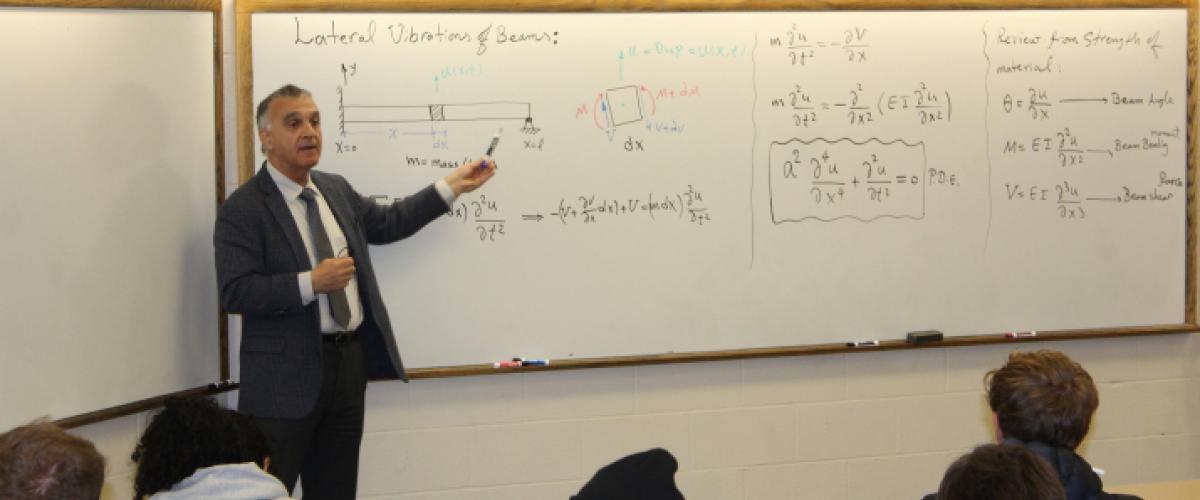 Lateral Vibrations of Beams:
y
u(x,t)
x
dx
x=0
x=l
m=mass
u=Disp=u(x,t)
M
M+dM
V
V+dV
dx
dx) ∂²u/∂t² ⟹ -(V+∂V/∂x dx)+V=(m dx) ∂²u/∂t²
m ∂²u/∂t² = -∂V/∂x
m ∂²u/∂t² = -∂²/∂x² (EI ∂²u/∂x²)
a² ∂⁴u/∂x⁴ + ∂²u/∂t² = 0 P.D.E.
Review from Strength of
material:
θ = ∂u/∂x → Beam Angle
M = EI ∂²u/∂x² → Beam Bending moment
V = EI ∂³u/∂x³ → Beam shear force